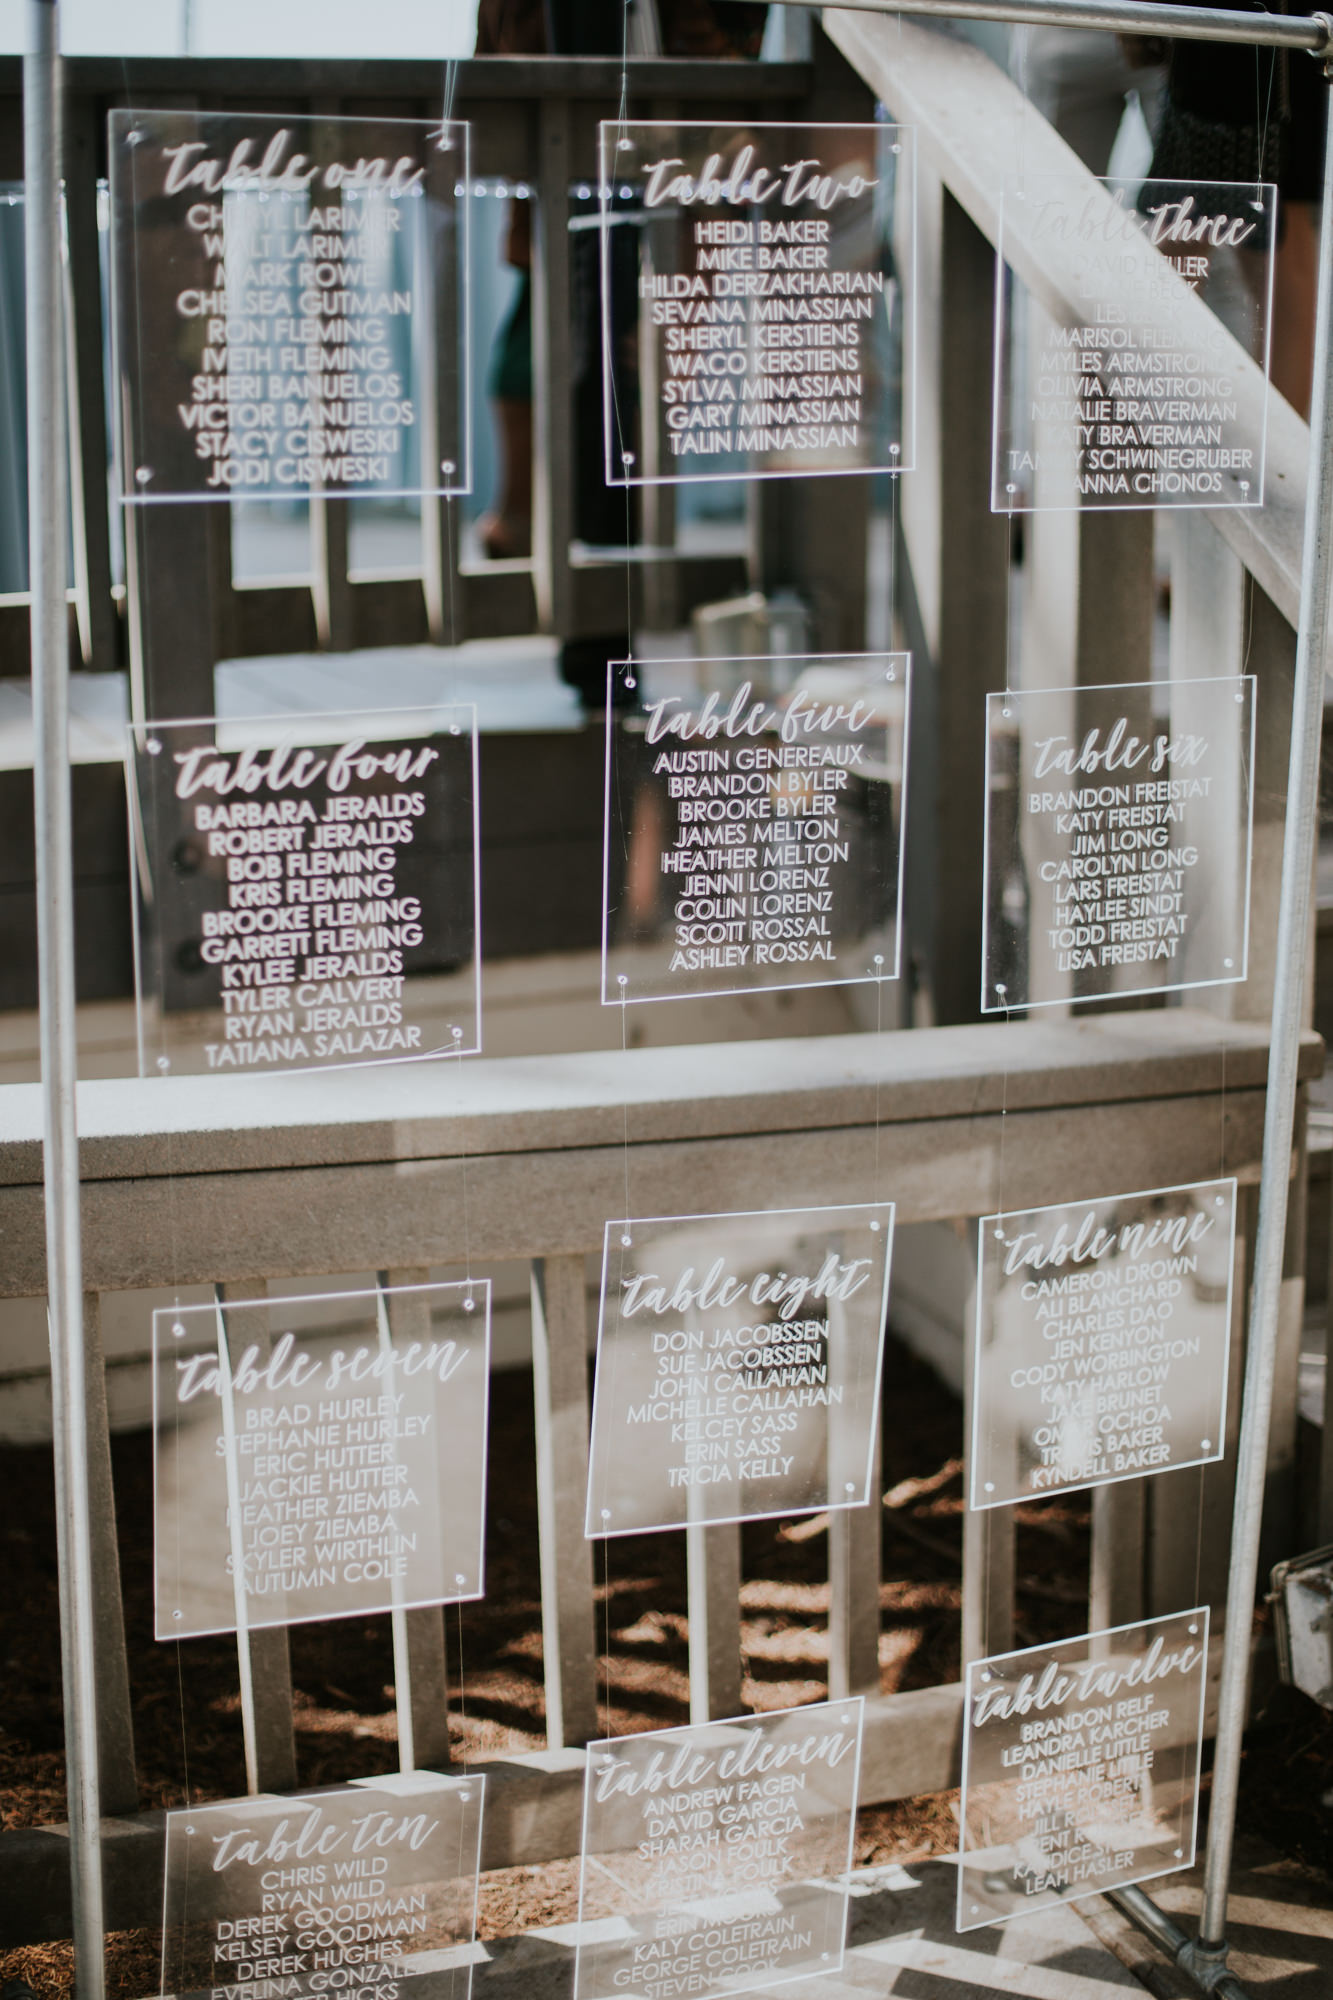 table one
CHERYL LARIMER
WALT LARIMER
MARK ROWE
CHELSEA GUTMAN
RON FLEMING
IVETH FLEMING
SHERI BANUELOS
VICTOR BANUELOS
STACY CISWESKI
JODI CISWESKI
table two
HEIDI BAKER
MIKE BAKER
HILDA DERZAKHARIAN
SEVANA MINASSIAN
SHERYL KERSTIENS
WACO KERSTIENS
SYLVA MINASSIAN
GARY MINASSIAN
TALIN MINASSIAN
table three
DAVID HELLER
BECK
MARISOL FLEMING
MYLES ARMSTRONG
OLIVIA ARMSTRONG
NATALIE BRAVERMAN
KATY BRAVERMAN
TAMMY SCHWINEGRUBER
CHONOS
table four
BARBARA JERALDS
ROBERT JERALDS
BOB FLEMING
KRIS FLEMING
BROOKE FLEMING
GARRETT FLEMING
KYLEE JERALDS
TYLER CALVERT
RYAN JERALDS
TATIANA SALAZAR
table five
AUSTIN GENEREAUX
BRANDON BYLER
BROOKE BYLER
JAMES MELTON
HEATHER MELTON
JENNI LORENZ
COLIN LORENZ
SCOTT ROSSAL
ASHLEY ROSSAL
table six
BRANDON FREISTAT
KATY FREISTAT
JIM LONG
CAROLYN LONG
LARS FREISTAT
HAYLEE SINDT
TODD FREISTAT
LISA FREISTAT
table seven
BRAD HURLEY
STEPHANIE HURLEY
ERIC HUTTER
JACKIE HUTTER
HEATHER ZIEMBA
JOEY ZIEMBA
SKYLER WIRTHLIN
AUTUMN COLE
table eight
DON JACOBSSEN
SUE JACOBSSEN
JOHN CALLAHAN
MICHELLE CALLAHAN
KELCEY SASS
ERIN SASS
TRICIA KELLY
table nine
CAMERON DROWN
ALI BLANCHARD
CHARLES DAO
JEN KENYON
CODY WORBINGTON
KATY HARLOW
JAKE BRUNET
OMAR OCHOA
TRAVIS BAKER
KYNDELL BAKER
table ten
CHRIS WILD
RYAN WILD
DEREK GOODMAN
KELSEY GOODMAN
DEREK HUGHES
EVELINA GONZALEZ
HICKS
table eleven
ANDREW FAGEN
DAVID GARCIA
SHARAH GARCIA
JASON FOULK
KRISTINA FOULK
ERIN MOORS
KALY COLETRAIN
GEORGE COLETRAIN
STEVEN COOK
table twelve
BRANDON RELF
LEANDRA KARCHER
DANIELLE LITTLE
STEPHANIE LITTLE
HAYLE ROBERT
JILL
KANDICE
LEAH HASLER